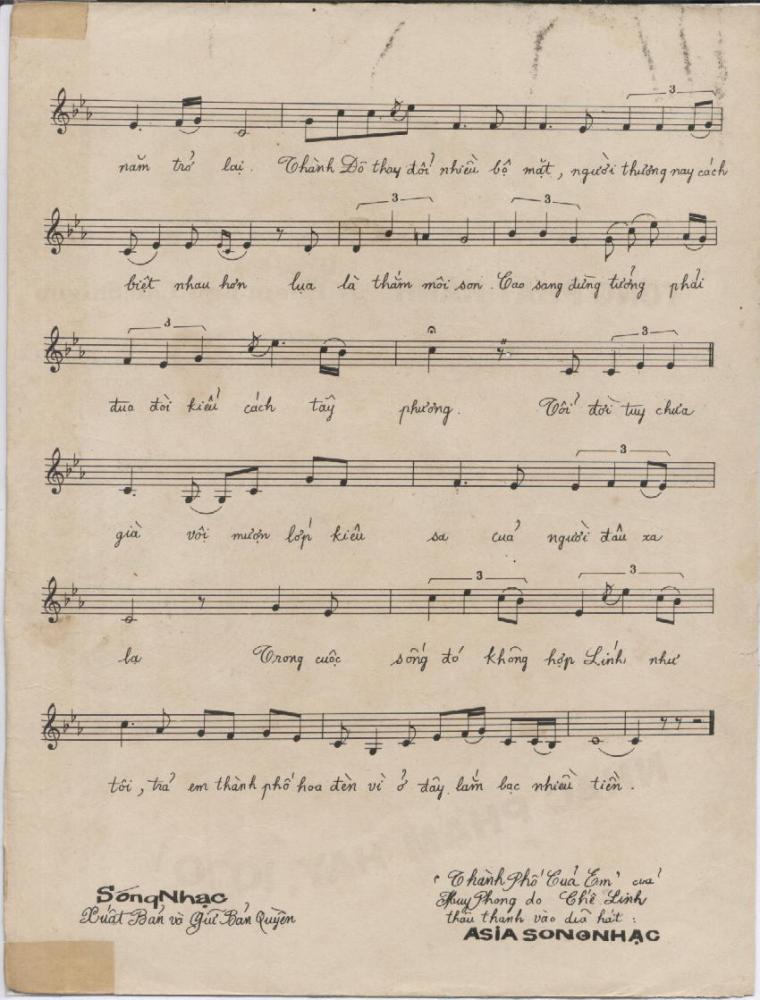 3
năm trở lại. Thành Đô thay đổi nhiều bộ mặt, người thương nay cách
3 3
biệt nhau hơn lụa là thắm môi son. Cao sang đừng tưởng phải
3 3
đua đòi kiểu cách tây phương. Tôi đời tuy chưa
3
già vội mượn lớp kiêu sa của người đâu xa
3 3
lạ Trong cuộc sống đó không hợp Lính như
tôi, trả em thành phố hoa đèn vì ở đây lắm bạc nhiều tiền.
SóngNhạc
Xuất Bản và Giữ Bản Quyền
"Thành Phố Của Em" của
Huy Phong do Chế Linh
thâu thanh vào dĩa hát :
ASIA SONGNHẠC